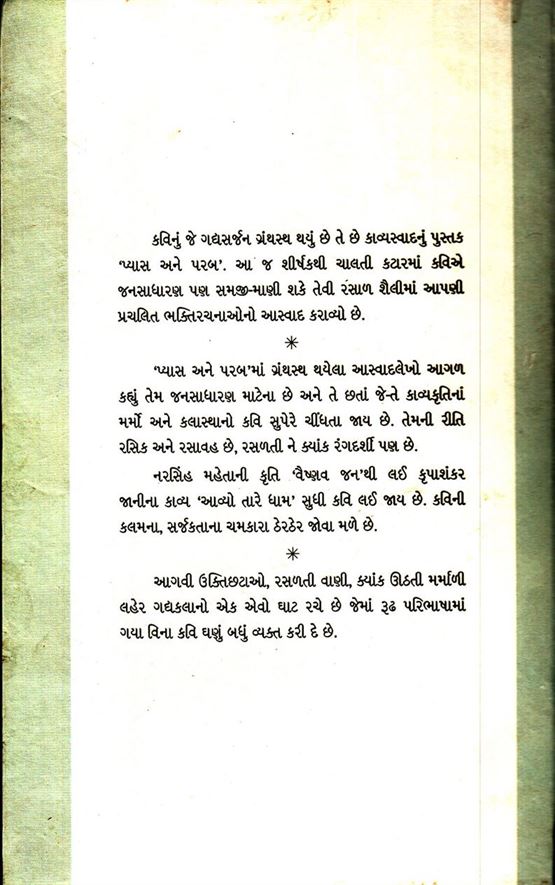 કવિનું જે ગદ્યસર્જન ગ્રંથસ્થ થયું છે તે છે કાવ્યસ્વાદનું પુસ્તક
‘પ્યાસ અને પરબ’. આ જ શીર્ષકથી ચાલતી કટારમાં કવિએ
જનસાધારણ પણ સમજી-માણી શકે તેવી રસાળ શૈલીમાં આપણી
પ્રચલિત ભક્તિરચનાઓનો આસ્વાદ કરાવ્યો છે.
*
‘પ્યાસ અને પરબ’માં ગ્રંથસ્થ થયેલા આસ્વાદલેખો આગળ
કહ્યું તેમ જનસાધારણ માટેના છે અને તે છતાં જે-તે કાવ્યકૃતિનાં
મર્મો અને કલાસ્થાનો કવિ સુપેરે ચીંધતા જાય છે. તેમની રીતિ
રસિક અને રસાવહ છે, રસળતી ને ક્યાંક રંગદર્શી પણ છે.
નરસિંહ મહેતાની કૃતિ ‘વૈષ્ણવ જન’થી લઈ કૃપાશંકર
જાનીના કાવ્ય ‘આવ્યો તારે ધામ’ સુધી કવિ લઈ જાય છે. કવિની
કલમના, સર્જકતાના ચમકારા ઠેરઠેર જોવા મળે છે.
*
આગવી ઉક્તિછટાઓ, રસળતી વાણી, ક્યાંક ઊઠતી મર્માળી
લહેર ગદ્યકલાનો એક એવો ઘાટ રચે છે જેમાં રૂઢ પરિભાષામાં
ગયા વિના કવિ ઘણું બધું વ્યક્ત કરી દે છે.